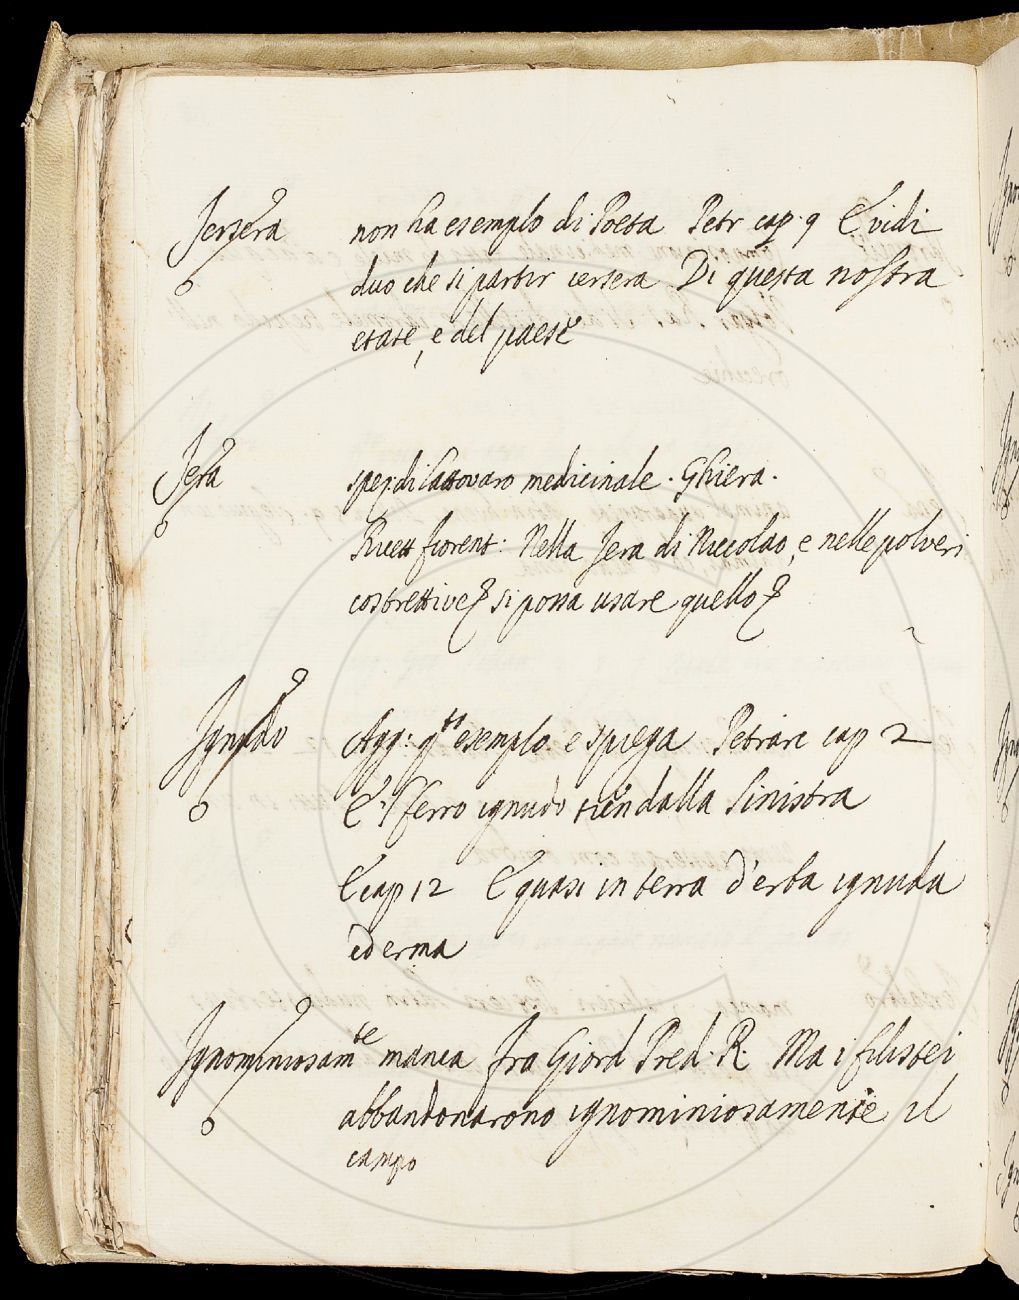 Jersera non ha esemplo di Poeta Petr cap. 9 E vidi
duo che si partir iersera Di questa nostra
etate, e del paese
Jera spez. di lattovaro medicinale. Ghiera.
Ricett fiorent: Nella Jera di Niccolao, e nelle polveri
costrettive si possa usare quello
Ignudo Agg: q.to esemplo e spiega Petrarc cap 2
E 'l ferro ignudo tien dalla sinistra
E cap 12 E quasi in terra d'erba ignuda
ed erma
Ignominiosamte manca Fra Giord Pred. R. Ma i filistei
abbandonarono ignominiosamente il
campo